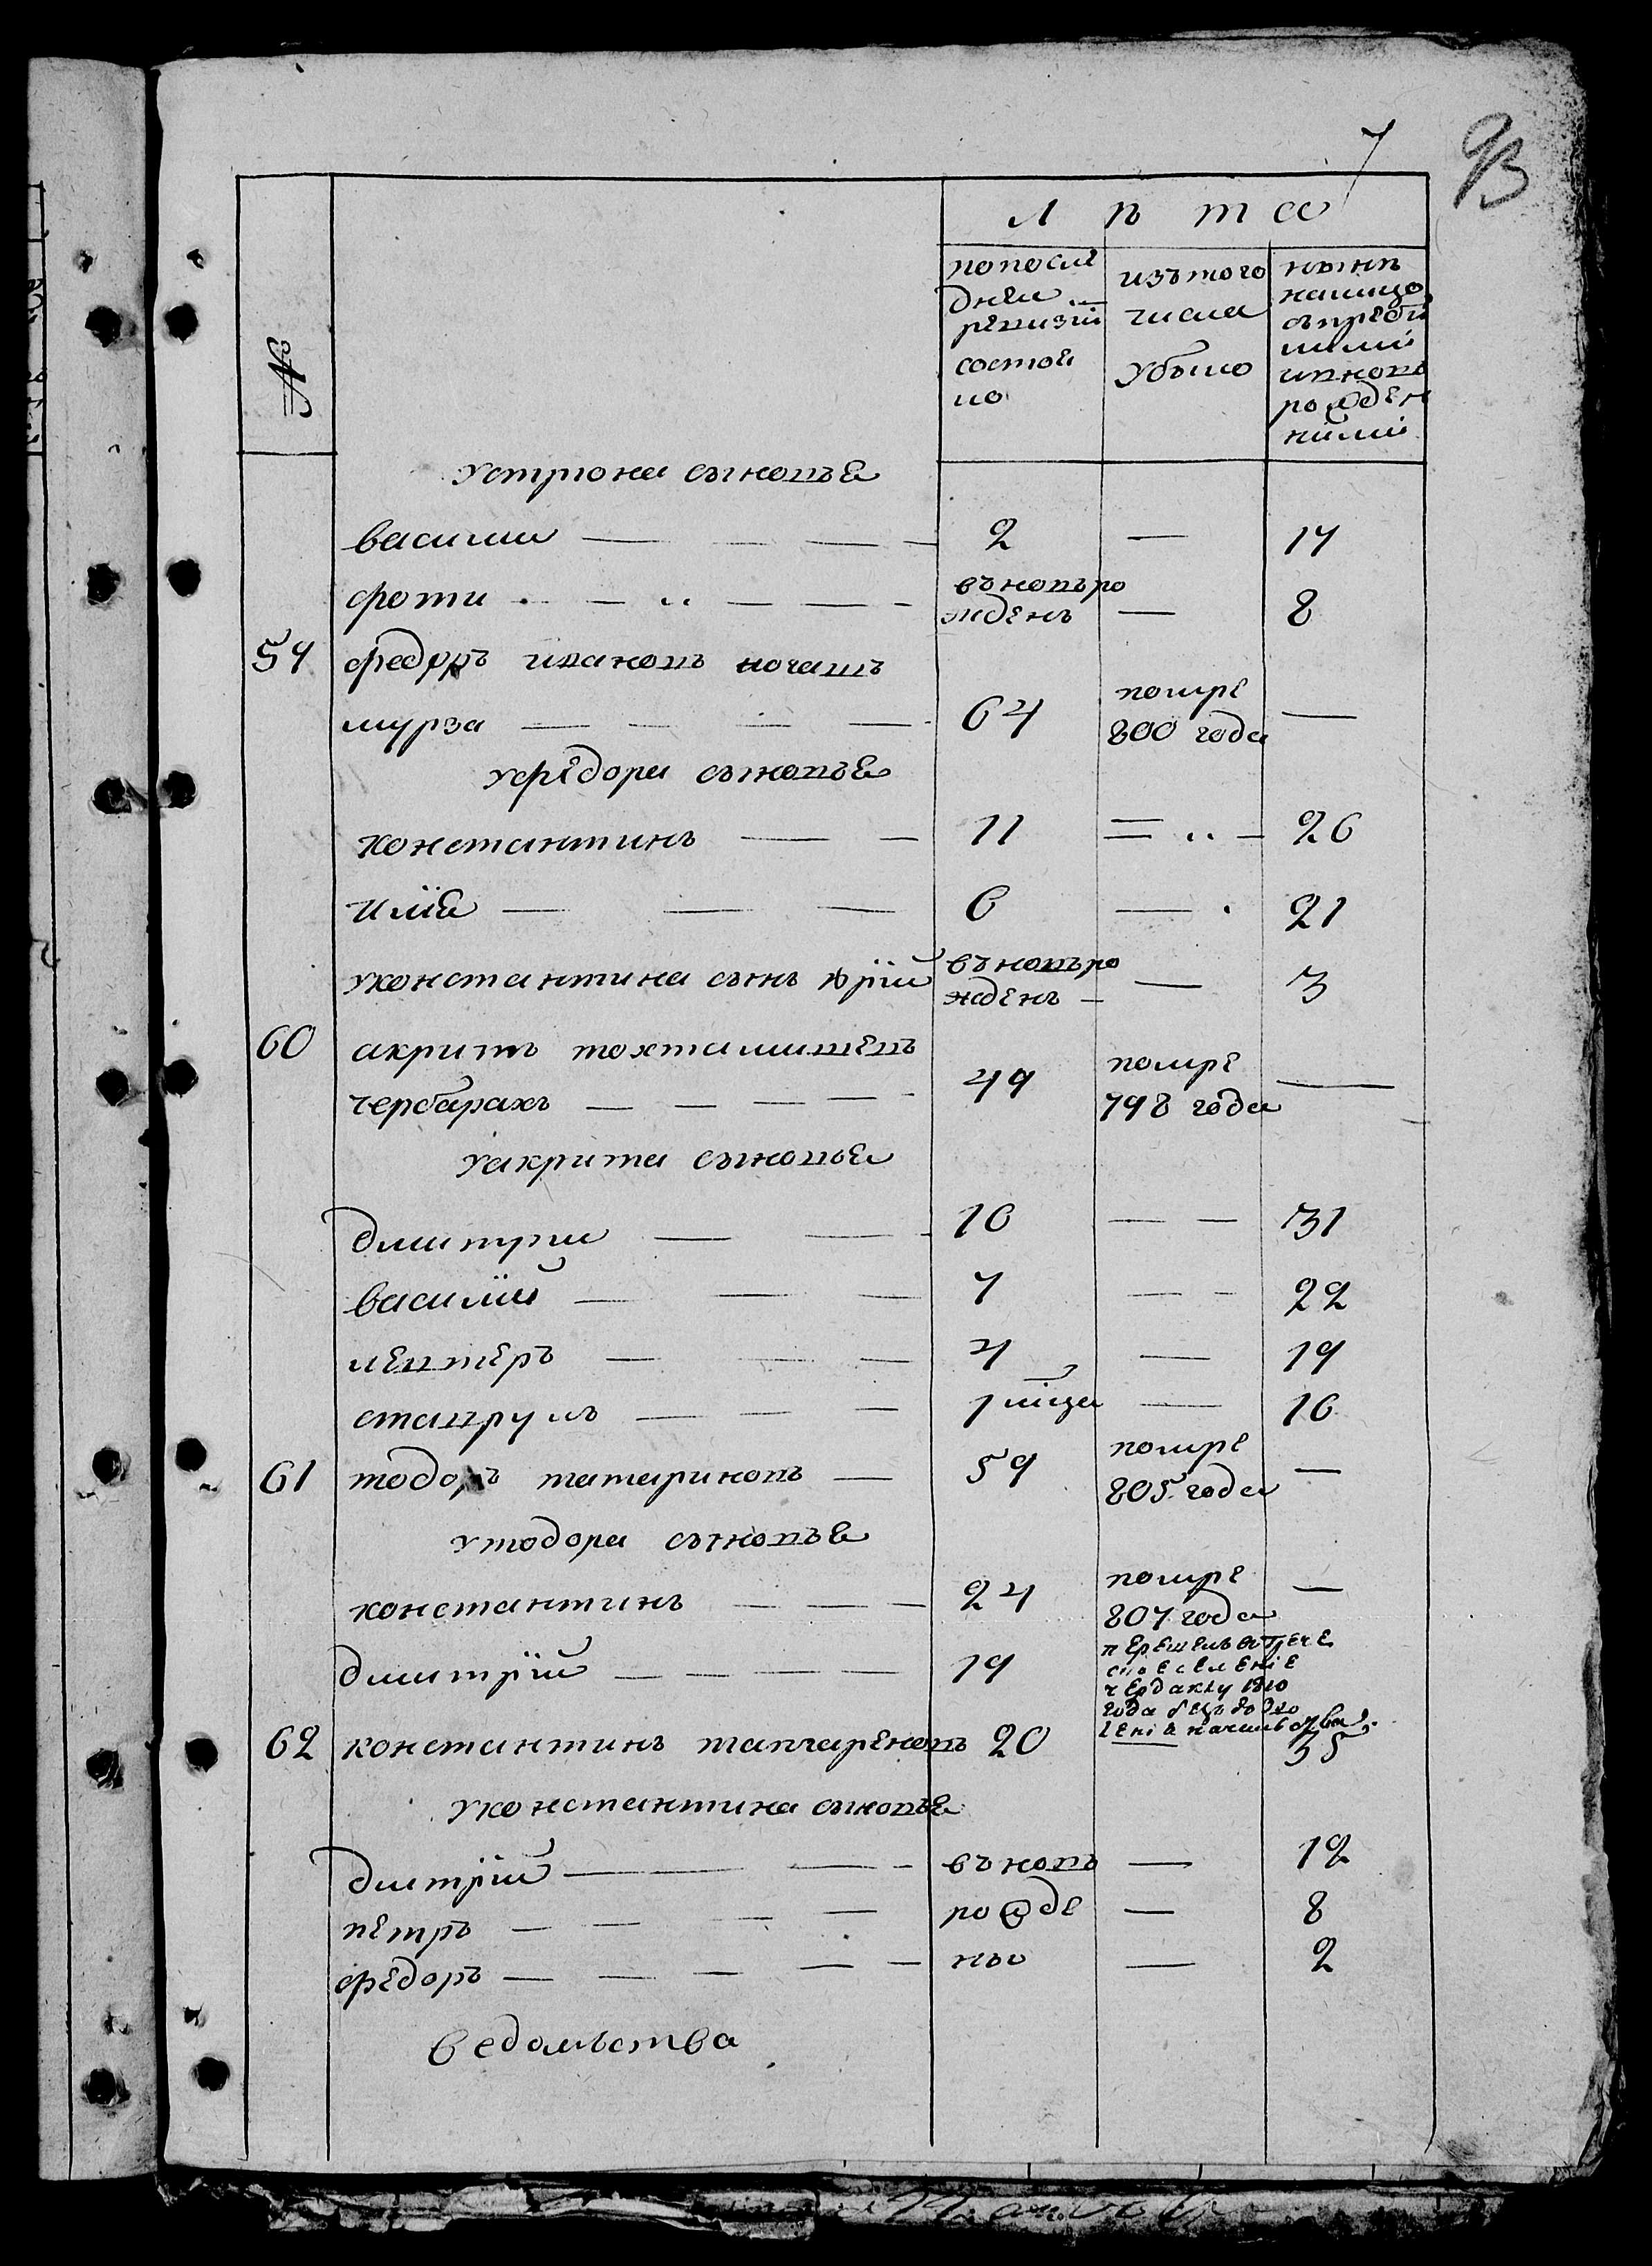 7
93
№
лѣта
по после
дней
ревизіи
состоя
ло
изътого
числа
убыло
нынѣ
налицо
съпреби
лыми
ивновь
рожден
ними
устріона сыновья
василии 2 — 17
фоти въновьро
жденъ — 8
59 федоръ ивановъ кочашъ
мурза 64 помре
800 года —
уфедора сыновья
константинъ 11 — 26
илія 6 — 21
уконстантина сынъ юрій въновьро
жденъ — 3
60 акритъ тохтамишевъ
чербарахъ 49 помре
798 года —
уакрита сыновья
дмитри 16 — 31
василій 7 — 22
левтеръ 4 — 19
ставрулъ 1 мца — 16
61 тодоръ татариновъ 59 помре
805 года —
утодора сыновья
константинъ 24 помре
807 года —
дмитрій 19 перешелъ въгрече
ское селеніе
чердаклу 1810
года безъ дозво
ленія начальства
62 константинъ тапчареновъ 20 35
уконстантина сыновья
дмтрій въновь — 12
петръ рожде — 8
федоръ ны — 2
ведомьства